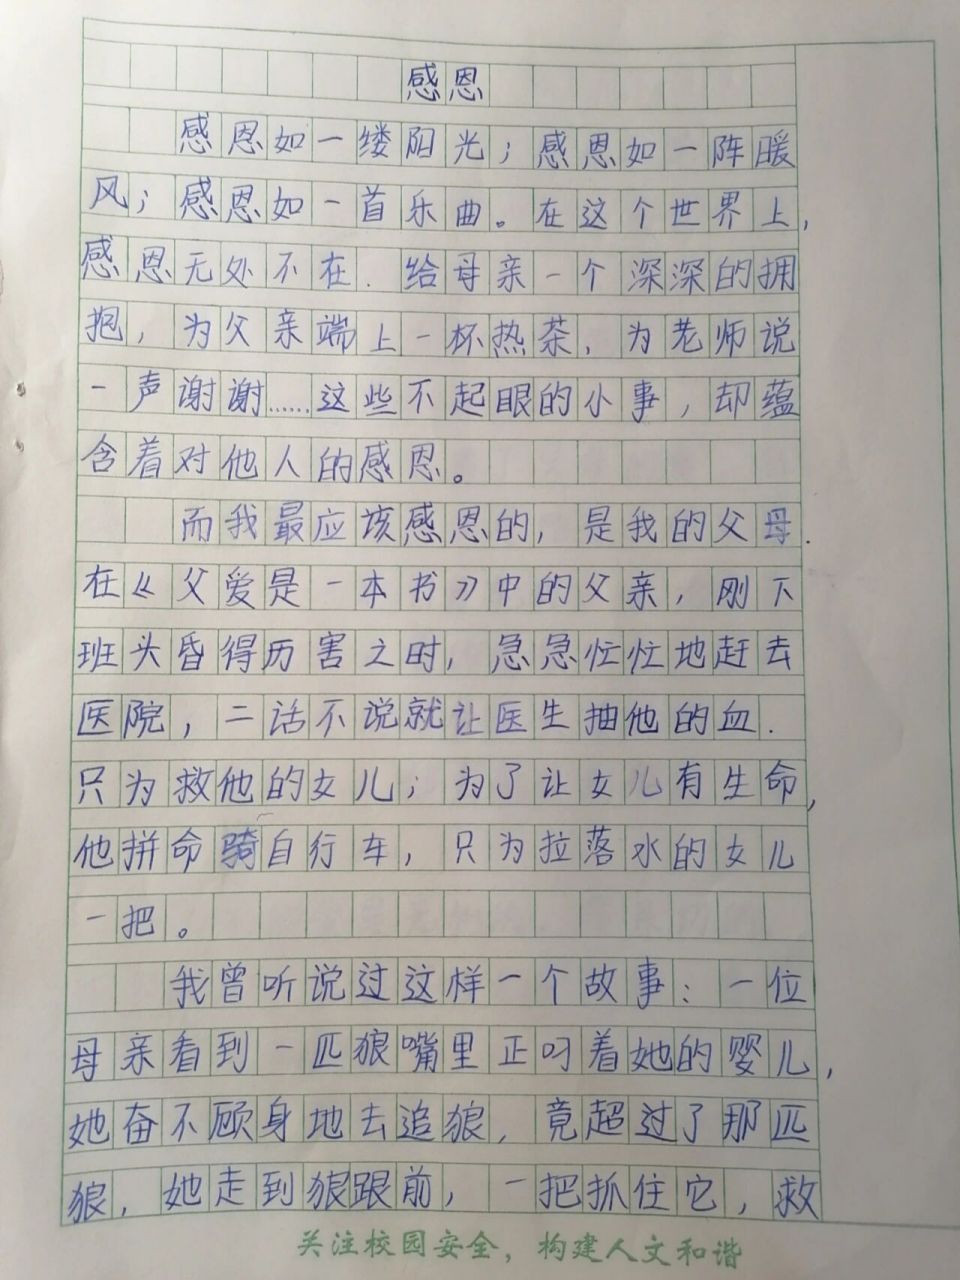 感恩
感恩如一缕阳光；感恩如一阵暖
风；感恩如一首乐曲。在这个世界上，
感恩无处不在．给母亲一个深深的拥
抱，为父亲端上一杯热茶，为老师说
一声谢谢……这些不起眼的小事，却蕴
含着对他人的感恩。
而我最应该感恩的，是我的父母．
在《父爱是一本书》中的父亲，刚下
班头昏得厉害之时，急急忙忙地赶去
医院，二话不说就让医生抽他的血．
只为救他的女儿；为了让女儿有生命，
他拼命骑自行车，只为拉落水的女儿
一把。
我曾听说过这样一个故事：一位
母亲看到一匹狼嘴里正叼着她的婴儿，
她奋不顾身地去追狼，竟超过了那匹
狼，她走到狼跟前，一把抓住它，救
关注校园安全，构建人文和谐